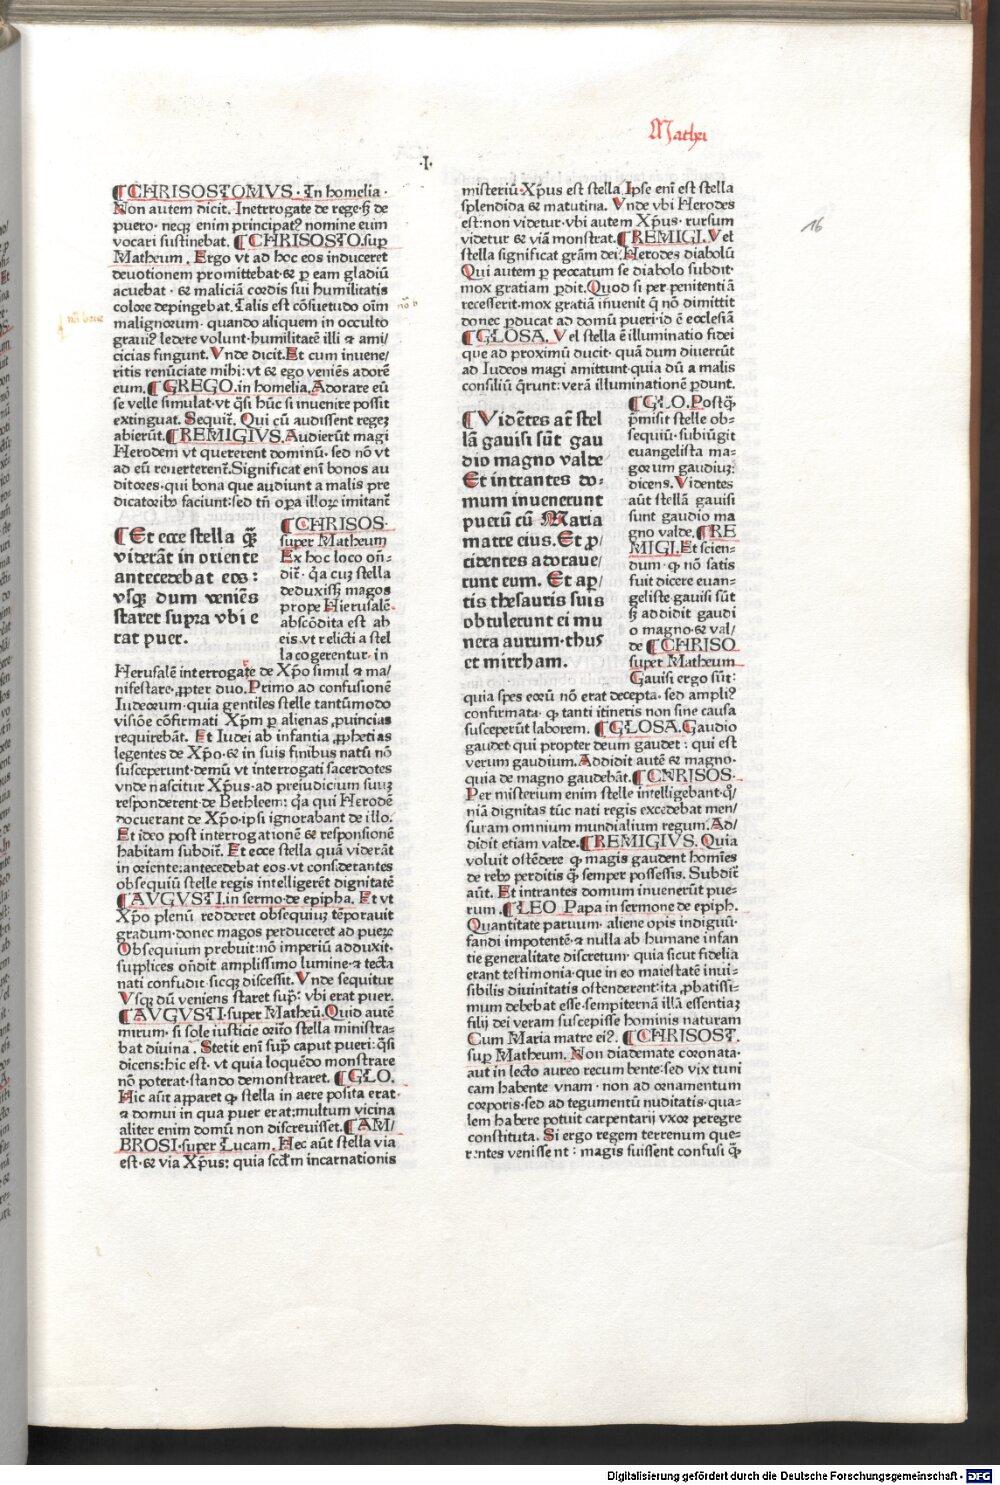 Mathei
·I·
16
¶CHRISOSTOMVS · In homelia ·
Non autem dicit. Inetrrogate de rege·ꝫ de
puero· necꝫ enim principatꝰ nomine eum
vocari sustinebat. ¶CHRISOSTO.sup
Matheum . Ergo vt ad hoc eos induceret
deuotionem promittebat·& ꝑ eam gladiū
acuebat · & maliciā cordis sui humilitatis
colore depingebat. Talis est cōsuetudo oīm
malignorum· quando aliquem in occulto
grauiꝰ ledere volunt·humilitatē illi ⁊ ami/
cicias fingunt. Vnde dicit.Et cum inuene/
ritis renūciate mihi: vt & ego veniēs adorē
eum. ¶GREGO.in homelia.Adorare eū
se velle simulat·vt q̄si hūc si inuenire possit
extinguat. Sequit᷑. Qui cū audissent regeꝫ
abierūt.¶REMIGIVS.Audierūt magi
Herodem vt quererent dominū· sed nō vt
ad eū reuerterent᷑.Significat enī bonos au
ditores·qui bona que audiunt a malis pre
dicatoribꝰ faciunt:sed tn̄ oꝑa illoꝝ imitant᷑
¶Et ecce stella q̄ꝫ
viderāt in oriente
antecedebat eos:
vsqꝫ dum veniēs
staret supra vbi e
rat puer.
¶CHRISOS·
super Matheum
Ex hoc loco on̄·
dit᷑· q̄a cuꝫ stella
deduxisꝫ magos
prope Hierusalē·
abscōdita est ab
eis.vt relicti a stel
la cogerentur· in
Herusalē interrogare de Xp̄o simul ⁊ ma/
nifestare·ꝓpter duo.Primo ad confusionē
Iudeorum·quia gentiles stelle tantūmodo
visiōe cōfirmati Xpm̄ ꝑ alienas ꝓuincias
requirebāt. Et Iudei ab infantia ꝓphetias
legentes de Xp̄o·& in suis finibus natū nō
susceperunt·demū vt interrogati sacerdotes
vnde nascitur Xp̄us·ad preiudicium suuꝫ
responderent·de Bethleem: q̄a qui Herodē
docuerant de Xp̄o·ipsi ignorabant de illo.
Et ideo post interrogationē & responsionē
habitam subdit᷑. Et ecce stella quā viderāt
in oriente:antecedebat eos·vt considerantes
obsequiū stelle regis intelligerēt dignitatē
¶AVGVSTI.in sermo·de epipha. Et vt
Xp̄o plenū redderet obsequiuꝫ tēporauit
gradum·donec magos perduceret ad pueꝝ
Obsequium prebuit:nō imperiū adduxit·
supplices on̄dit amplissimo lumine·⁊ tecta
nati confudit·sicqꝫ discessit. Vnde sequitur
Vsqꝫ dū veniens staret supꝰ: vbi erat puer.
¶AVGVSTI·super Matheū.Quid autē
mirum· si sole iusticie oriro stella ministra=
bat diuina . Stetit enī sup̄ caput pueri:q̄si
dicens:hic est· vt quia loquēdo monstrare
nō poterat·stando demonstraret. ¶GLO.
Hic aūt apparet ꝙ stella in aere posita erat·
⁊ domui in qua puer erat:multum vicina
aliter enim domū non discreuisset.¶AM/
BROSI·super Lucam. Hec aūt stella via
est·& via Xp̄us: quia scd̄m incarnationis
misteriū·Xp̄us est stella.Ipse enī est stella
splendida & matutina. Vnde vbi Herodes
est:non videtur·vbi autem Xp̄us· rursum
videtur & viā monstrat.¶REMIGI.Vel
stella significat grām dei. Herodes diabolū
Qui autem ꝑ peccatum se diabolo subdit·
mox gratiam ꝑdit.Quod si per penitentiā
recesserit·mox gratiā inuenit q̄ nō dimittit
donec ꝑducat ad domū pueri·id ē ecclesiā
¶GLOSA. Vel stella ē illuminatio fidei
que ad proximū ducit· quā dum diuerrūt
ad Iudeos magi amittunt·quia dū a malis
consiliū q̄runt: verā illuminationē ꝑdunt.
¶Vidētes aūt stel
lā gauisi sūt gau
dio magno valde
Et intrantes do·
mum inuenerunt
puerū cū Maria
matre eius.Et ꝓ/
cidentes adoraue/
runt eum. Et ap/
tis thesauris suis
obtulerunt ei mu
nera aurum·thus
et mirrham.
¶GLO.Postq̄ꝫ
ꝑmisit stelle ob=
sequiū·subiūgit
euangelista ma=
gorum gaudiuꝫ:
dicens. Videntes
aūt stellā gauisi
sunt gaudio ma
gno valde.¶RE
MIGI.Et scien=
dum· ꝙ nō satis
fuit dicere euan=
geliste gauisi sūt
sꝫ addidit gaudi
o magno·& val/
de ¶CHRISO
super Matheum
Gauisi ergo sūt:
quia spes eorū nō erat decepta· sed ampliꝰ
confirmata· ꝙ tanti itineris non sine causa
susceperūt laborem. ¶GLOSA.Gaudio
gaudet qui propter deum gaudet : qui est
verum gaudium. Addidit autē & magno·
quia de magno gaudebāt.¶CNRISOS·
Per misterium enim stelle intelligebant·qꝫ/
niā dignitas tūc nati regis excedebat men/
suram omnium mundialium regum.Ad/
didit etiam valde.¶REMIGIVS. Quia
voluit ostēdere ꝙ magis gaudent homīes
de rebꝰ perditis q̄ꝫ semper possessis. Subdit᷑
aūt. Et intrantes domum inuenerūt pue=
rum .¶LEO Papa in sermone de epiph.
Quantitate paruum· aliene opis indiguū·
fandi impotentē·⁊ nulla ab humane infan
tie generalitate discretum· quia sicut fidelia
erant testimonia·que in eo maiestatē inui=
sibilis diuinitatis ostenderent:ita ꝓbatissi=
mum debebat esse·sempiternā illā essentiaꝫ
filij dei veram suscepisse hominis naturam
Cum Maria matre eiꝰ. ¶CHRISOST.
sup Matheum. Non diademate coronata·
aut in lecto aureo recumbente:sed vix tuni
cam habente vnam · non ad ornamentum
corporis·sed ad tegumentū nuditatis·qua=
lem habere potuit carpentarij vxor peregre
constituta. Si ergo regem terrenum que=
rentes venissent : magis fuissent confusi q̄ꝫ
Digitalisierung gefördert durch die Deutsche Forschungsgemeinschaft - DFG